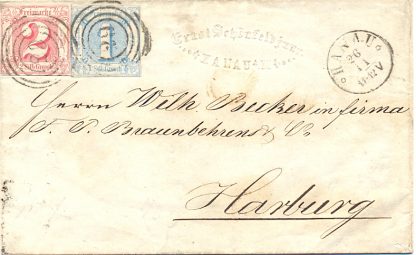 Freimarkt
2
Freimarkt
1
Ernst Schönfeld junr.
HANAU
HANAU
26
11
Herrn Wilh Becker in firma
J. P. Braunbehrens & Co
Harburg